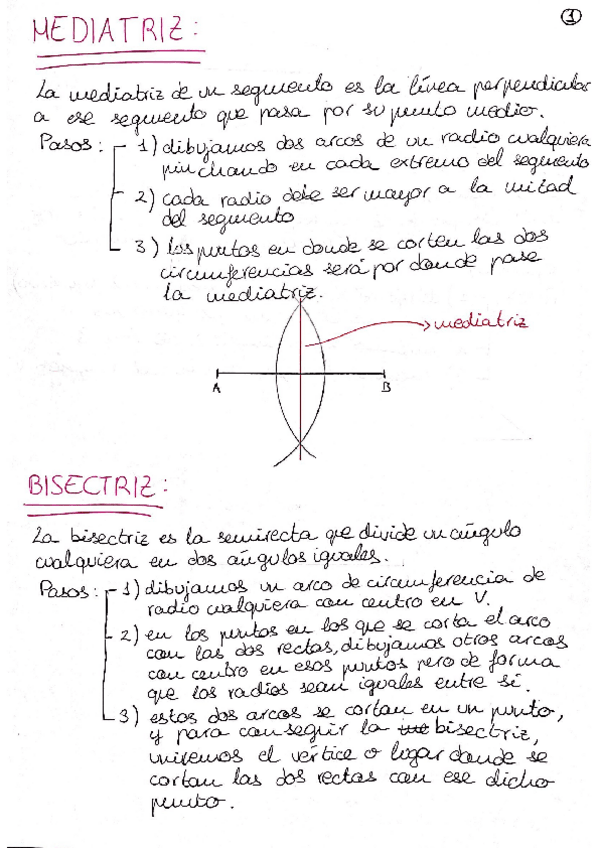 ①
MEDIATRIZ:
La mediatriz de un segmento es la línea perpendicular
a ese segmento que pasa por su punto medio.
Pasos: 1) dibujamos dos arcos de un radio cualquiera
pinchando en cada extremo del segmento
2) cada radio debe ser mayor a la mitad
del segmento
3) los puntos en donde se corten las dos
circunferencias será por donde pase
la mediatriz.
mediatriz
A B
BISECTRIZ:
La bisectriz es la semirecta que divide un ángulo
cualquiera en dos ángulos iguales.
Pasos: 1) dibujamos un arco de circunferencia de
radio cualquiera con centro en V.
2) en los puntos en los que se corta el arco
con las dos rectas, dibujamos otros arcos
con centro en esos puntos pero de forma
que los radios sean iguales entre sí.
3) estos dos arcos se cortan en un punto,
y para conseguir la bisectriz,
uniremos el vértice o lugar donde se
cortan las dos rectas con ese dicho
punto.